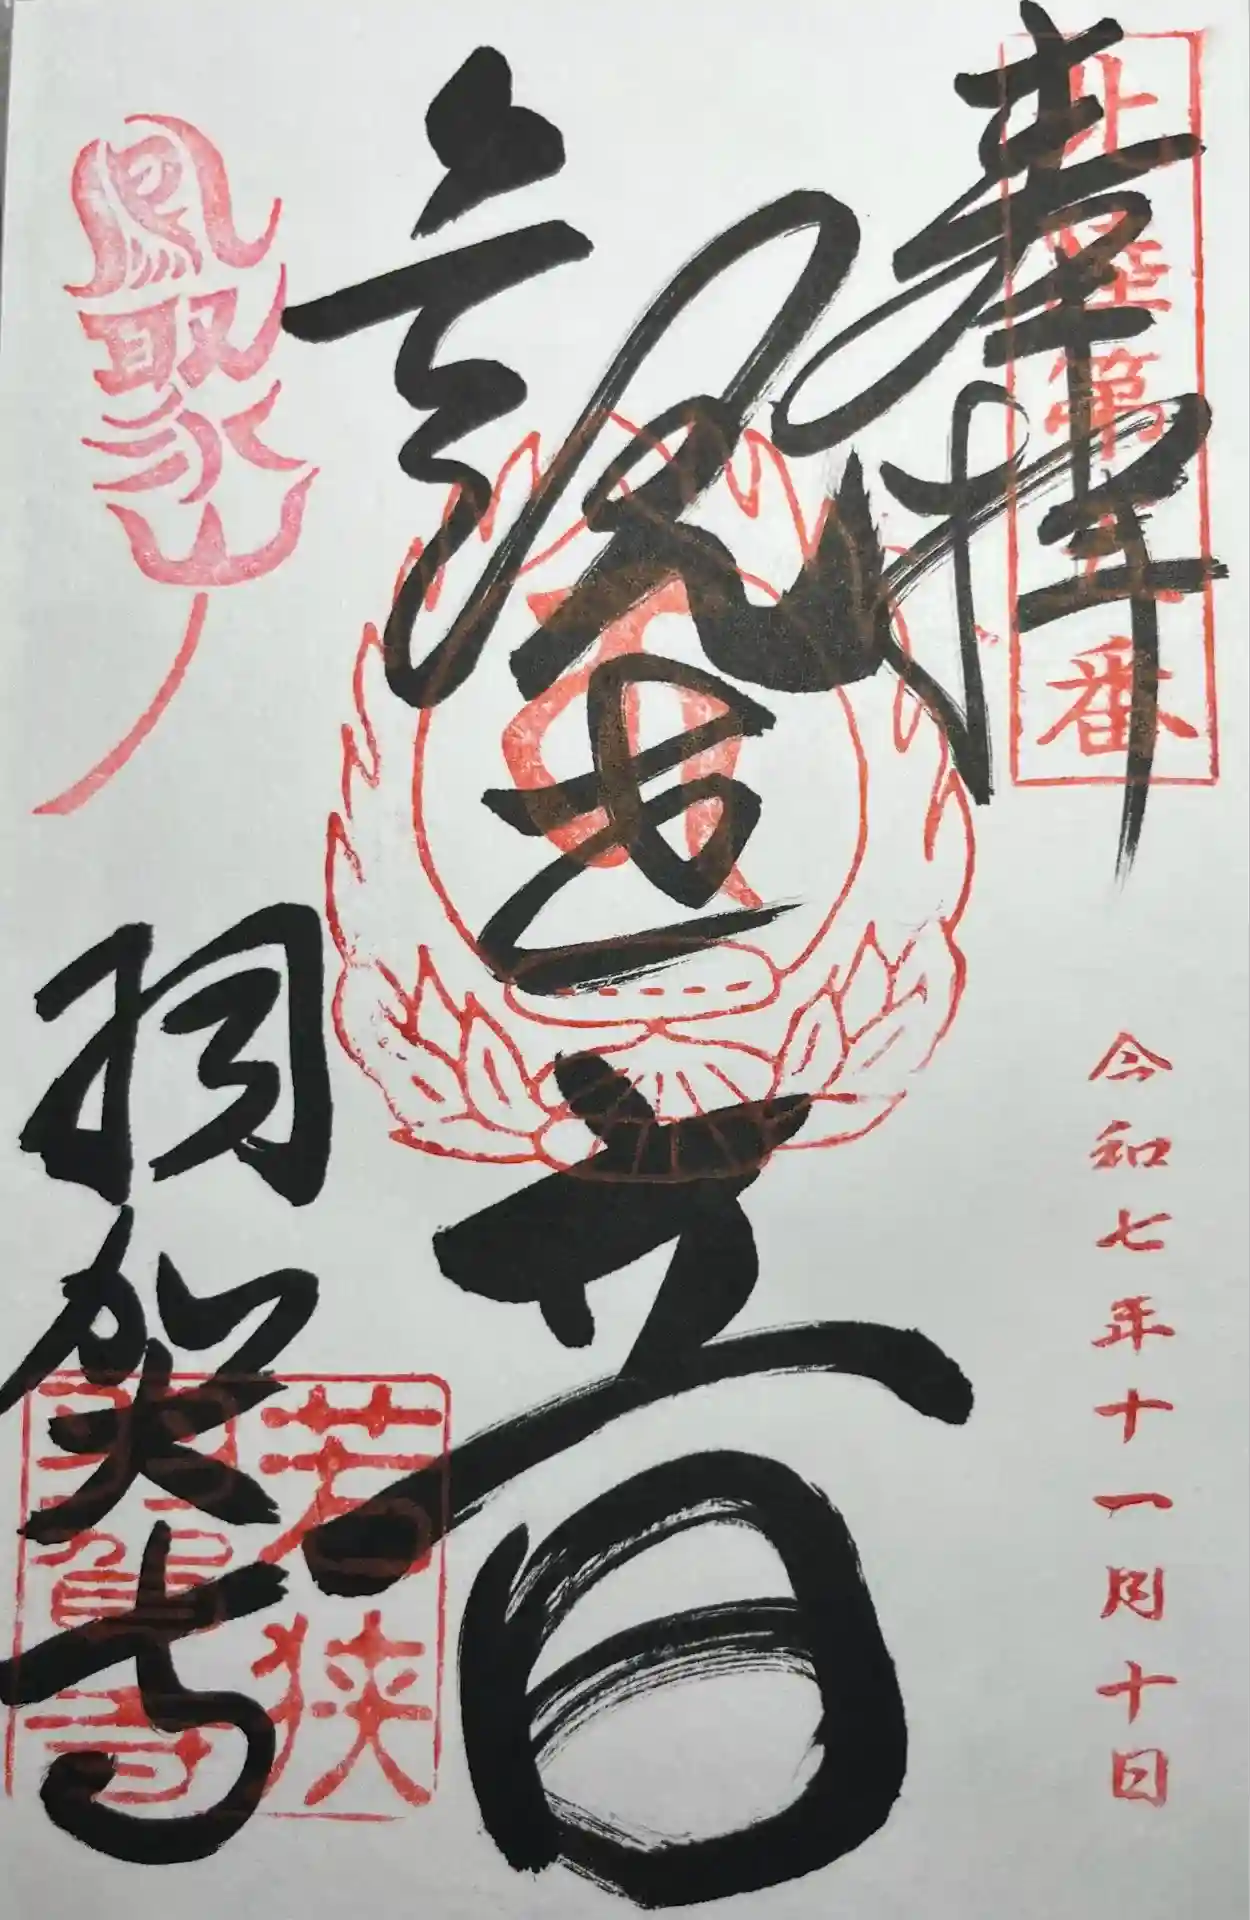 奉拝
北陸第五番
令和七年十一月十日
観世音
鳳聚山
羽賀寺
若狭
羽賀寺